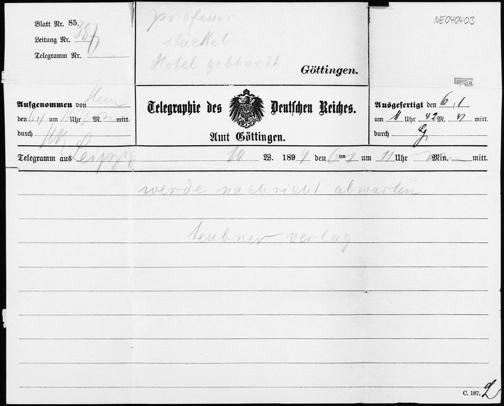 Blatt Nr. 85.
Leitung Nr. 367
Telegramm Nr.
professor
stäckel
Hotel gebhardt
Göttingen.
NE040403
Aufgenommen von
den 6/1 um Uhr M. mitt.
durch
Telegraphie des Deutschen Reiches.
Amt Göttingen.
Ausgefertigt den 6/1
um 11 Uhr 42 M. V mitt.
durch
Telegramm aus Leipzig 10 W. 189 den 6/1 um 11 Uhr Min. mitt.
werde nachricht abwarten
teubner verlag
C. 187.
2